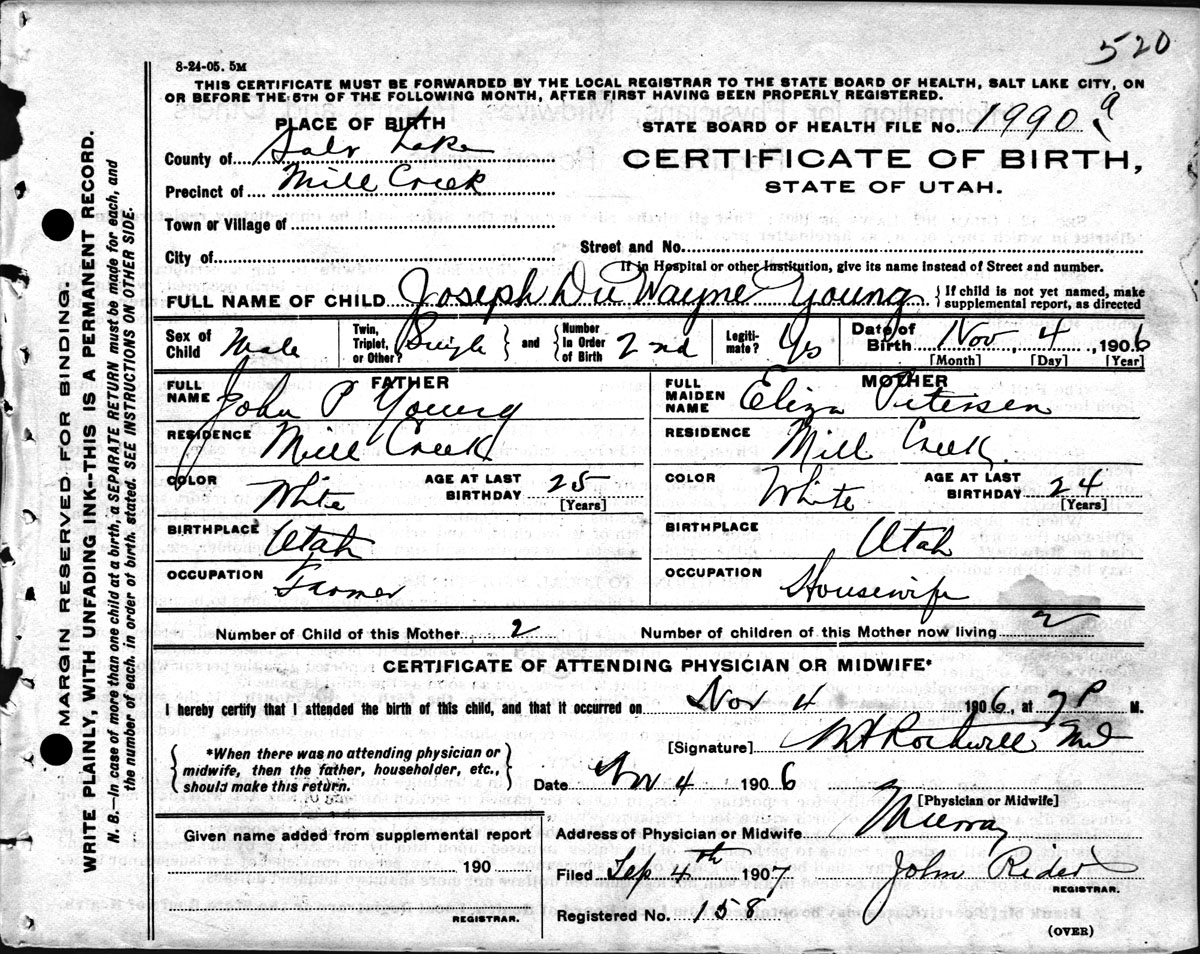 520
8-24-05. 5M
THIS CERTIFICATE MUST BE FORWARDED BY THE LOCAL REGISTRAR TO THE STATE BOARD OF HEALTH, SALT LAKE CITY, ON
OR BEFORE THE 5TH OF THE FOLLOWING MONTH, AFTER FIRST HAVING BEEN PROPERLY REGISTERED.
PLACE OF BIRTH
County of Salt Lake
Precinct of Mill Creek
Town or Village of
City of
STATE BOARD OF HEALTH FILE No. 1990 a
CERTIFICATE OF BIRTH,
STATE OF UTAH.
Street and No.
If in Hospital or other Institution, give its name instead of Street and number.
FULL NAME OF CHILD Joseph Du Wayne Young { If child is not yet named, make
supplemental report, as directed
Sex of Child Male
Twin, Triplet, or Other? Single } and { Number In Order of Birth 2nd
Legiti-mate? Yes
Date of Birth Nov, 4, 1906
[Month] [Day] [Year]
FATHER
FULL NAME John P Young
RESIDENCE Mill Creek
COLOR White AGE AT LAST BIRTHDAY 25
[Years]
BIRTHPLACE Utah
OCCUPATION Farmer
MOTHER
FULL MAIDEN NAME Eliza Petersen
RESIDENCE Mill Creek.
COLOR White AGE AT LAST BIRTHDAY 24
[Years]
BIRTHPLACE Utah
OCCUPATION Housewife
Number of Child of this Mother 2 Number of children of this Mother now living 2
CERTIFICATE OF ATTENDING PHYSICIAN OR MIDWIFE*
I hereby certify that I attended the birth of this child, and that it occurred on Nov 4 1906, at 7 P M.
[Signature] Rockwell Md
{ *When there was no attending physician or
midwife, then the father, householder, etc.,
should make this return. }
Date Nov 4 1906
[Physician or Midwife]
Given name added from supplemental report
190
REGISTRAR.
Address of Physician or Midwife Murray
Filed Feb 4th 1907 John Rider
REGISTRAR.
Registered No. 158
(OVER)
MARGIN RESERVED FOR BINDING.
WRITE PLAINLY, WITH UNFADING INK--THIS IS A PERMANENT RECORD.
N. B.—In case of more than one child at a birth, a SEPARATE RETURN must be made for each, and
the number of each, in order of birth, stated. SEE INSTRUCTIONS ON OTHER SIDE.